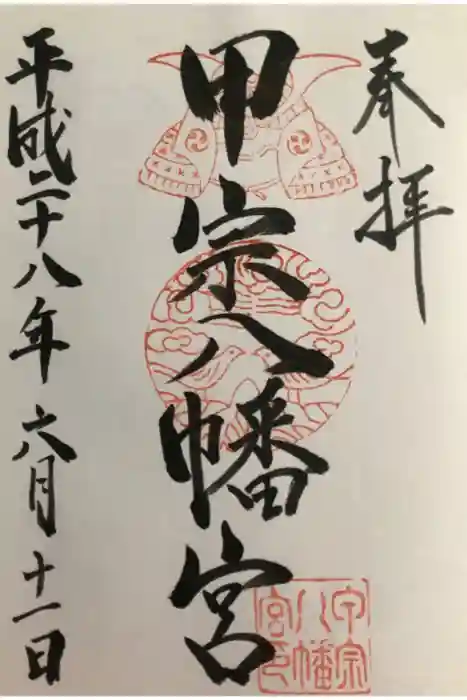 奉拝
甲宗八幡宮
平成二十八年六月十一日
甲宗
八幡
宮印